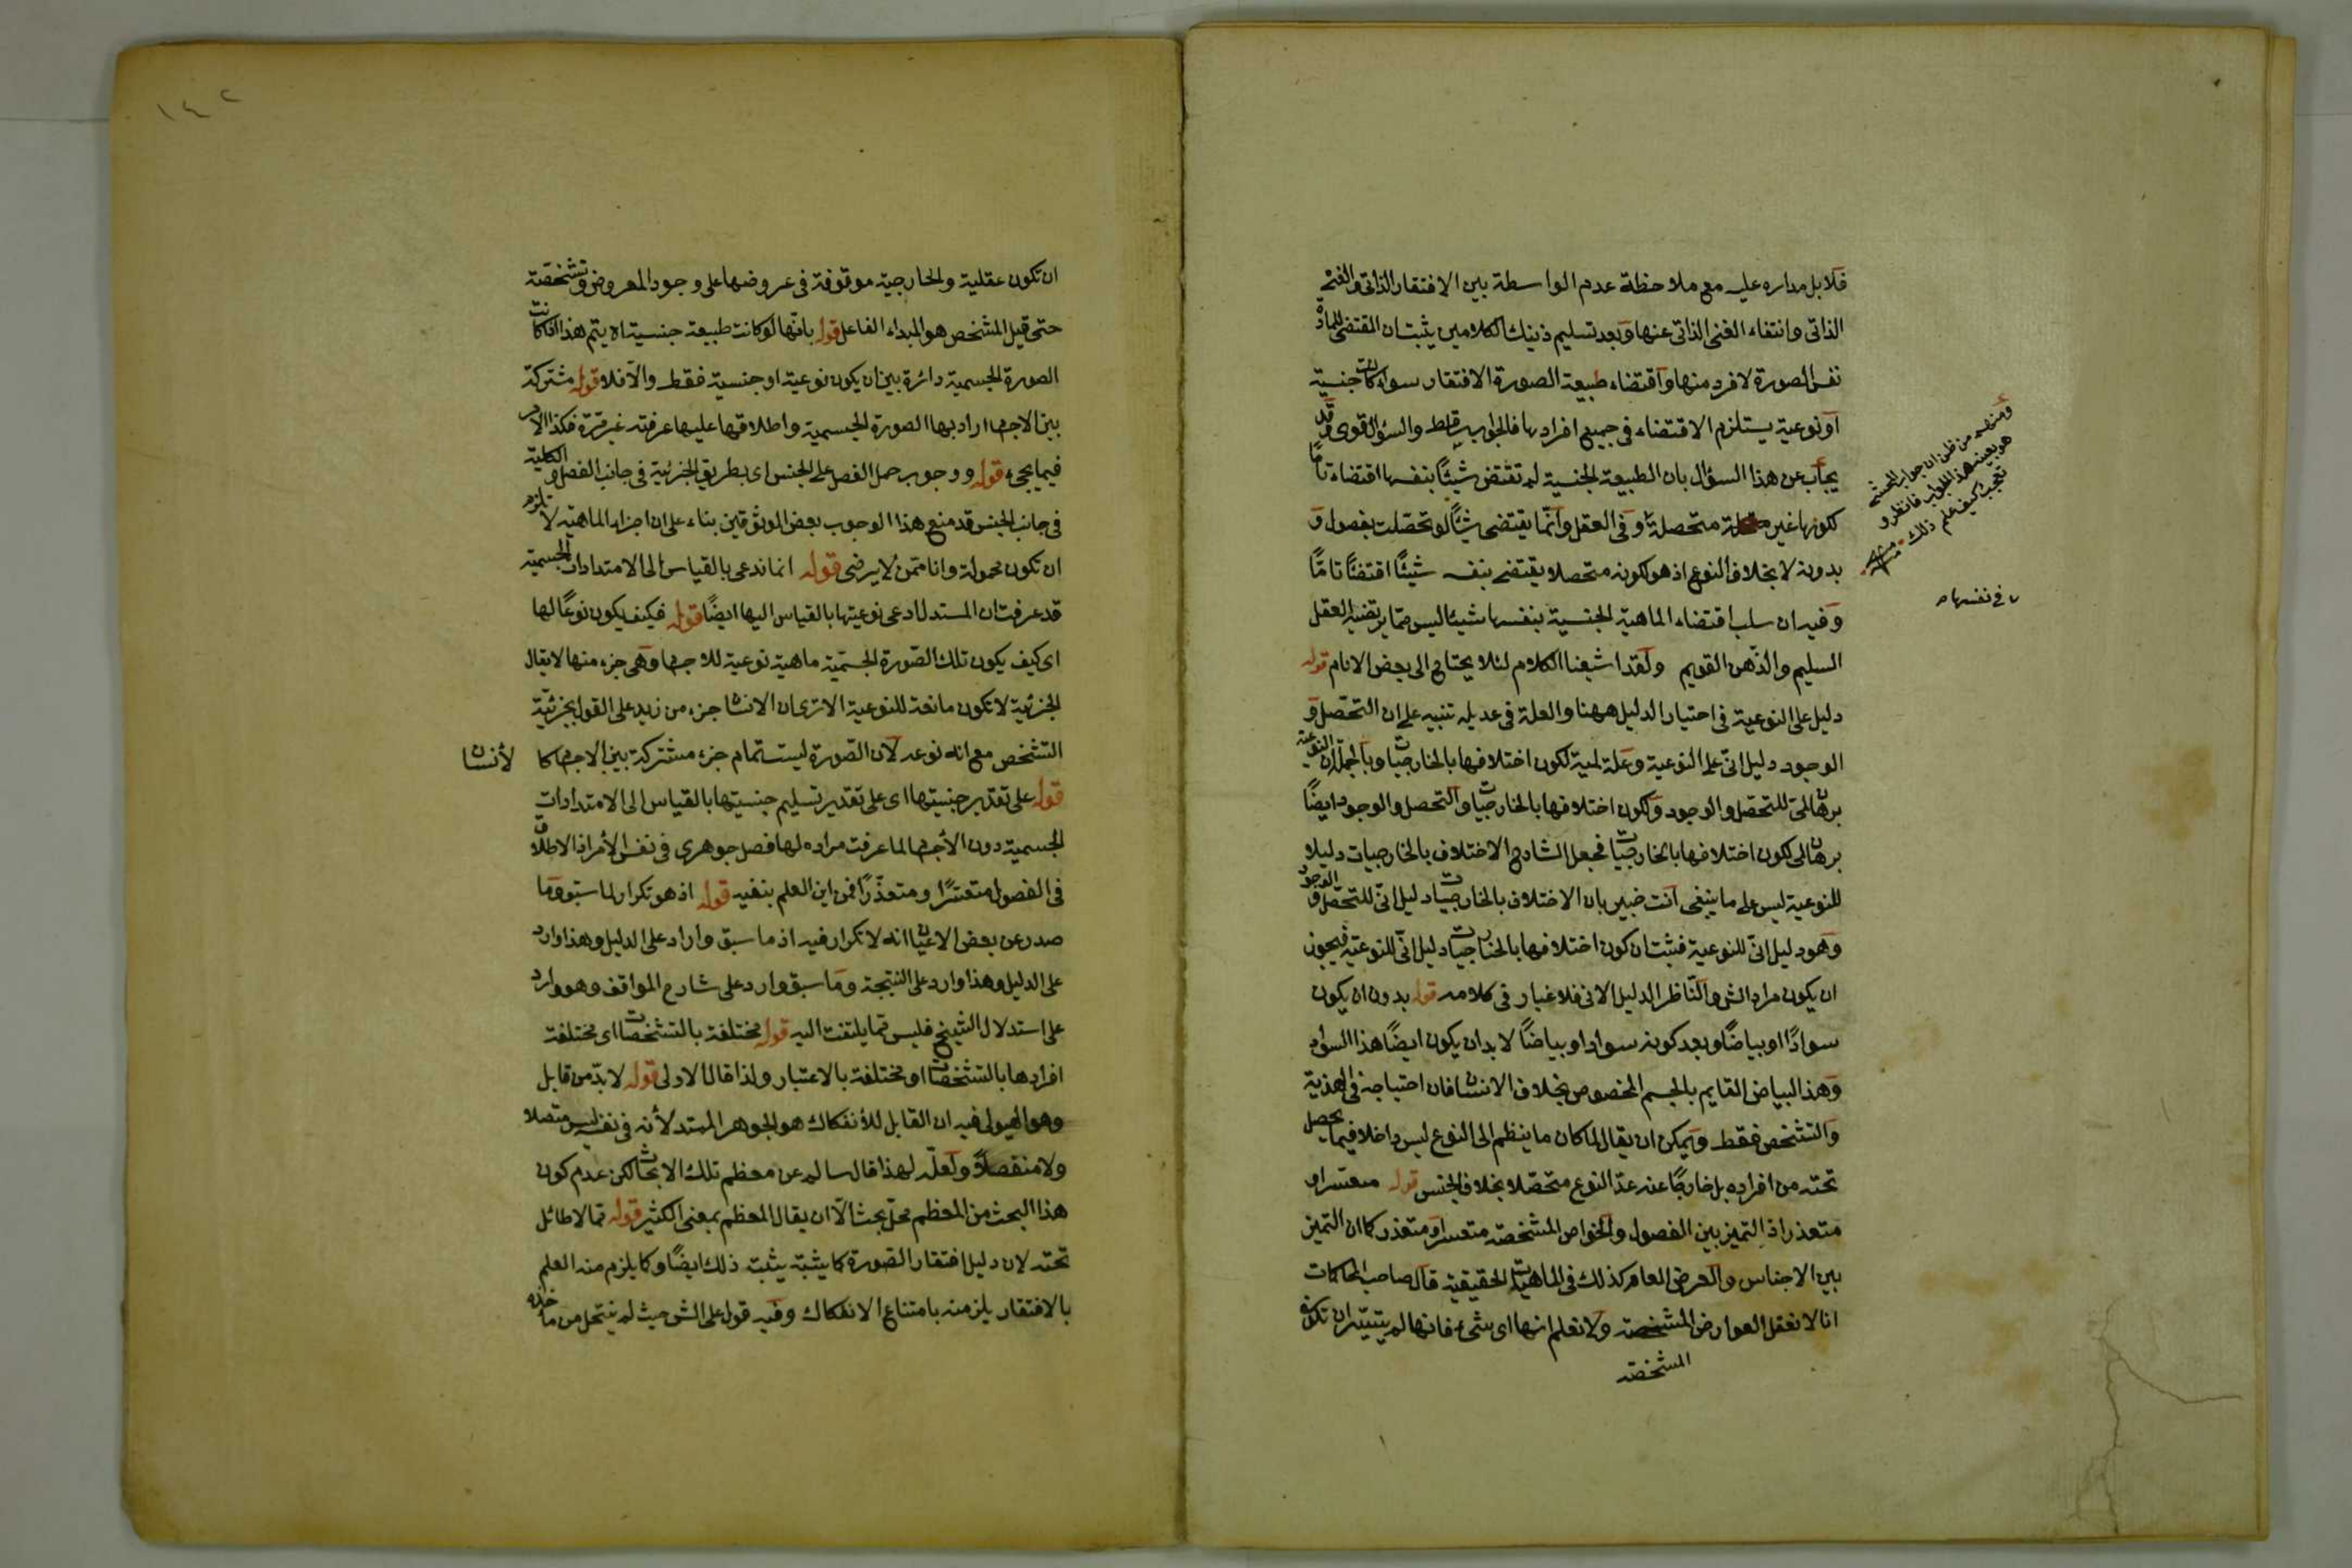 فلا بل مداره عليه مع ملاحظة عدم الواسطة بين الافتقار الذاتى والغنى
الذاتى وانتفاء الغنى الذاتى عنها وبعد تسليم ذينك الكلامين يثبت ان المقتضى للمادة
نفس الصورة لا فرد منها واقتضاء طبيعة الصورة الافتقار سواء كانت جنسية
او نوعية يستلزم الاقتضاء فى جميع افرادها فالجواب ساقط والسؤال قوى وقد
يجاب عن هذا السؤال بان الطبيعة الجنسية لم تقتض شيئًا بنفسها اقتضاء تامًا
لكونها غير متحصلة وفى العقل وانّما يقتضى شيئًا لو تحصّلت بفصول و
بدونه لا بخلاف النوع اذ هو لكونه متحصلا يقتضى بنفسه شيئًا اقتضاء تامًّا
وفيه ان سلب اقتضاء الماهية الجنسية بنفسها شيئا ليس ممّا يرتضيه العقل
السليم والذّهن القويم ولقد اشبعنا الكلام لئلا يحتاج الى بعض الانام قوله
دليل على النوعية فى اختيار الدليل ههنا والعلة فى عديله تنبيه على ان التحصّل و
الوجود دليل انّى على النوعية وعلة لمية لكون اختلافها بالخارجيات وبالجملة ان النوعية
برهان لمى للتحصّل والوجود ولكون اختلافها بالخارجيات والتحصل والوجود ايضًا
برهان لمى لكون اختلافها بالخارجيات فجعل الشارح الاختلاف بالخارجيات دليلا
للنوعية ليس على ما ينبغى انت خبير بان الاختلاف بالخارجيات دليل انّى للتحصّل والوجود
وهو دليل انّى للنوعية فيثبت ان كون اختلافها بالخارجيات دليل انّى للنوعيّة فيجوز
ان يكون مراد الش والنّاظر الدليل الانى فلا غبار فى كلامه قوله بدون ان يكون
سوادًا او بياضًا وبعد كونه سوادا او بياضًا لا بد ان يكون ايضًا هذا السواد
وهذا البياض القايم بالجسم المخصوص بخلاف الانسان فان احتياجه فى الهذية
والتشخص فقط ويمكن ان يقال لما كان ما ينظم الى النوع ليس داخلا فيما يحصل
تحته من افراده بل خارجًا عنه عدّ النوع متحصّلا بخلاف الجنس قوله متعسرا و
متعذرا اذ التميز بين الفصول والخواص المشخصة متعسرا ومتعذر كما ان التميز
بين الاجناس والعرض العام كذلك فى الماهيات الحقيقية قال صاحب المحاكمات
انا لا نعقل العوارض المشخصة ولا نعلم انها اى شىء فانها لم يتبيّن ان تكون
المشخصة
ومنهم من ظن ان جواب المحشى
هو بعينه هذا الجواب فانظر و
تعجب كيف علم ذلك منه
فى نفسها
١٤٢
ان تكون عقلية والخارجية موقوفة فى عروضها على وجود المعروض وتشخصّه
حتى قيل المشخص هو المبداء الفاعل قوله بانّها لو كانت طبيعة جنسية اه يتم هذا اذا كانت
الصورة الجسمية دائرة بين ان يكون نوعية او جنسية فقط والّا فلا قوله مشتركة
بين الاجسام اراد بها الصورة الجسمية واطلاقها عليها عرفته غير مرّة فكذا المراد
فيما يجىء قوله ووجوب حمل الفصل على الجنس اى بطريق الجزئية فى جانب الفصل والكلية
فى جانب الجنس قد منع هذا الوجوب بعض الموثوقين بناء على ان اجزاء الماهيّة لا تلزم
ان تكون محمولة وانا ممّن لا يرضى قوله انما ندعى بالقياس الى الامتدادات الجسمية
قد عرفت ان المستدل ادعى نوعيتها بالقياس اليها ايضًا قوله فكيف يكون نوعًا لها
اى كيف يكون تلك الصّورة الجسّمية ماهية نوعية للاجسام وهى جزء منها لا يقال
الجزئية لا تكون مانعة للنوعية الا ترى ان الانسان جزء من زيد على القول بجزئيّة
التشخص مع انه نوعه لان الصّورة ليست تمام جزء مشتركة بين الاجسام كالأنسان
قوله على تقدير جنسيتها اى على تقدير تسليم جنسيتها بالقياس الى الامتدادات
الجسمية دون الأجسام لما عرفت مراده لها فصل جوهرى فى نفس الأمر اذ الاطلاق
فى الفصول متعسّرًا ومتعذّرًا فمن اين العلم بنفيه قوله اذ هو تكرار لما سبق وما
صدر عن بعض الاعيان انه لا تكرار فيه اذ ما سبق واراد على الدليل وهذا وارد
على الدليل وهذا وارد على النتيجة وما سبق وارد على شارح المواقف وهو وارد
على استدلال الشيخ فليس مما يلتفت اليه قوله مختلفة بالتشخصات اى مختلفة
افرادها بالتشخصات او مختلفة بالاعتبار ولذا قال الاولى قوله لا بدّ من قابل
وهو الهيولى فيه ان القابل للأنفكاك هو الجوهر الممتد لأنه فى نفسه ليس متصلا
ولا منفصلًا ولعلّه لهذا قال سالم عن معظم تلك الابحاث لكن عدم كون
هذا البحث من المعظم محل بحث الّا ان يقال المعظم بمعنى الكثير قوله مما لا طائل
تحته لان دليل افتقار الصّورة كما يثبته يثبت ذلك ايضًا وكما يلزم منه العلم
بالافتقار يلزم منه بامتناع الانفكاك وفيه قول على الش حيث لم ينتحل من